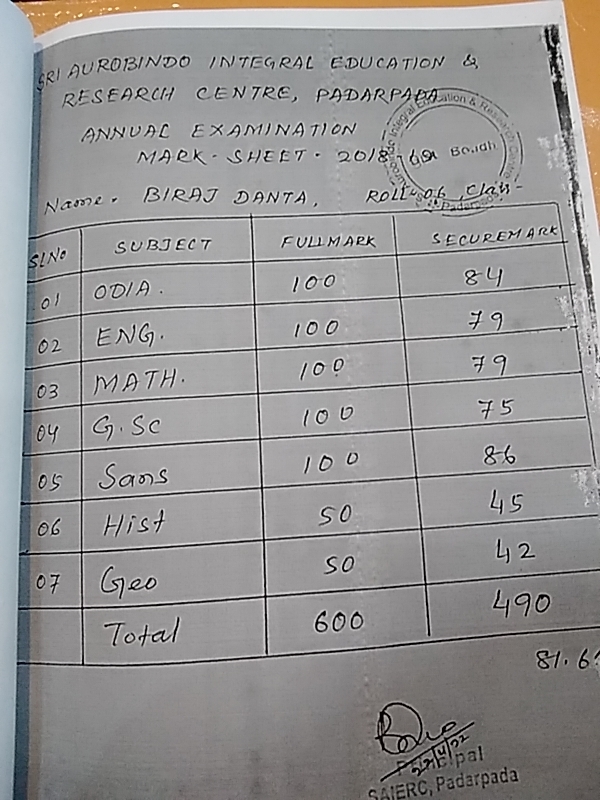 SRI AUROBINDO INTEGRAL EDUCATION &
RESEARCH CENTRE, PADARPADA
ANNUAL EXAMINATION
MARK-SHEET. 2018-
Name. BIRAJ DANTA, ROLL-06, Class-
SLNo SUBJECT FULLMARK SECUREMARK
01 ODIA. 100 84
02 ENG. 100 79
03 MATH. 100 79
04 G.SC 100 75
05 Sans 100 86
06 Hist 50 45
07 Geo 50 42
Total 600 490
81.6
Principal
SAIERC, Padarpada